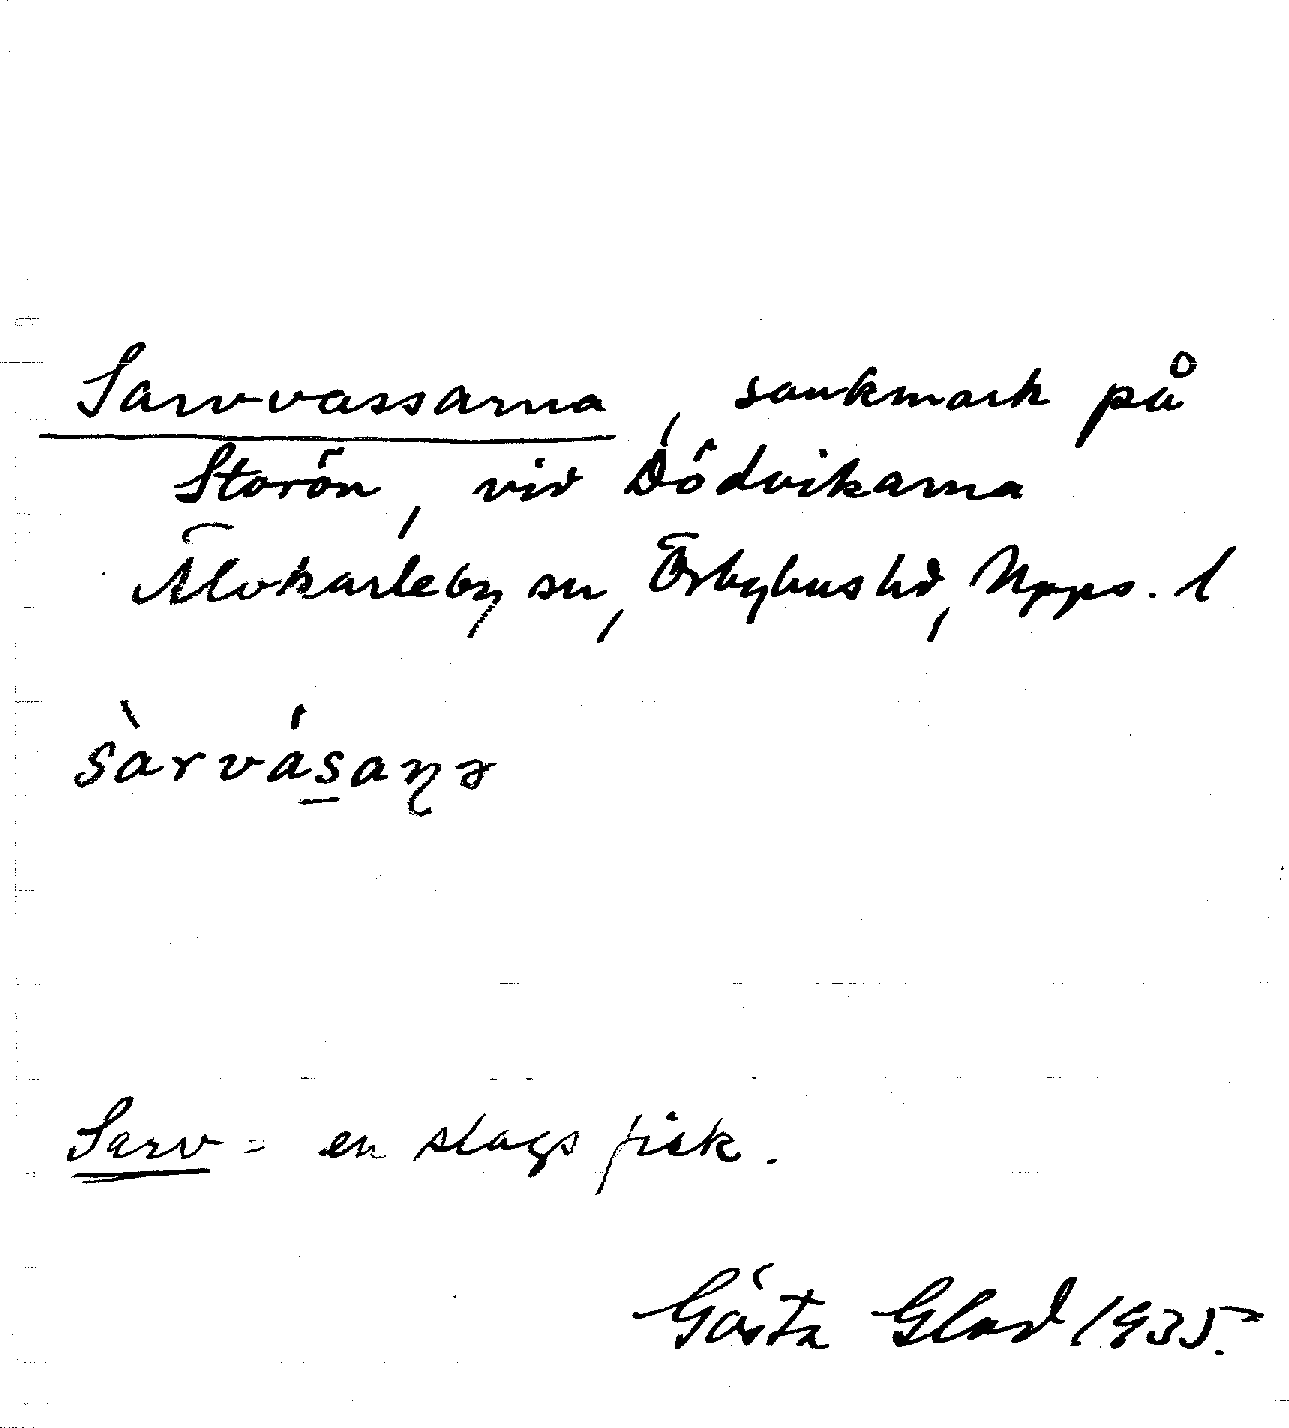 Sarvvassarna, sankmark på
Storön, vid Dödvikarna
Älvkarleby sn, Örbyhus hd, Upps. l
sàrvásaṉə
Sarv = en slags fisk.
Gösta Glad 1935.